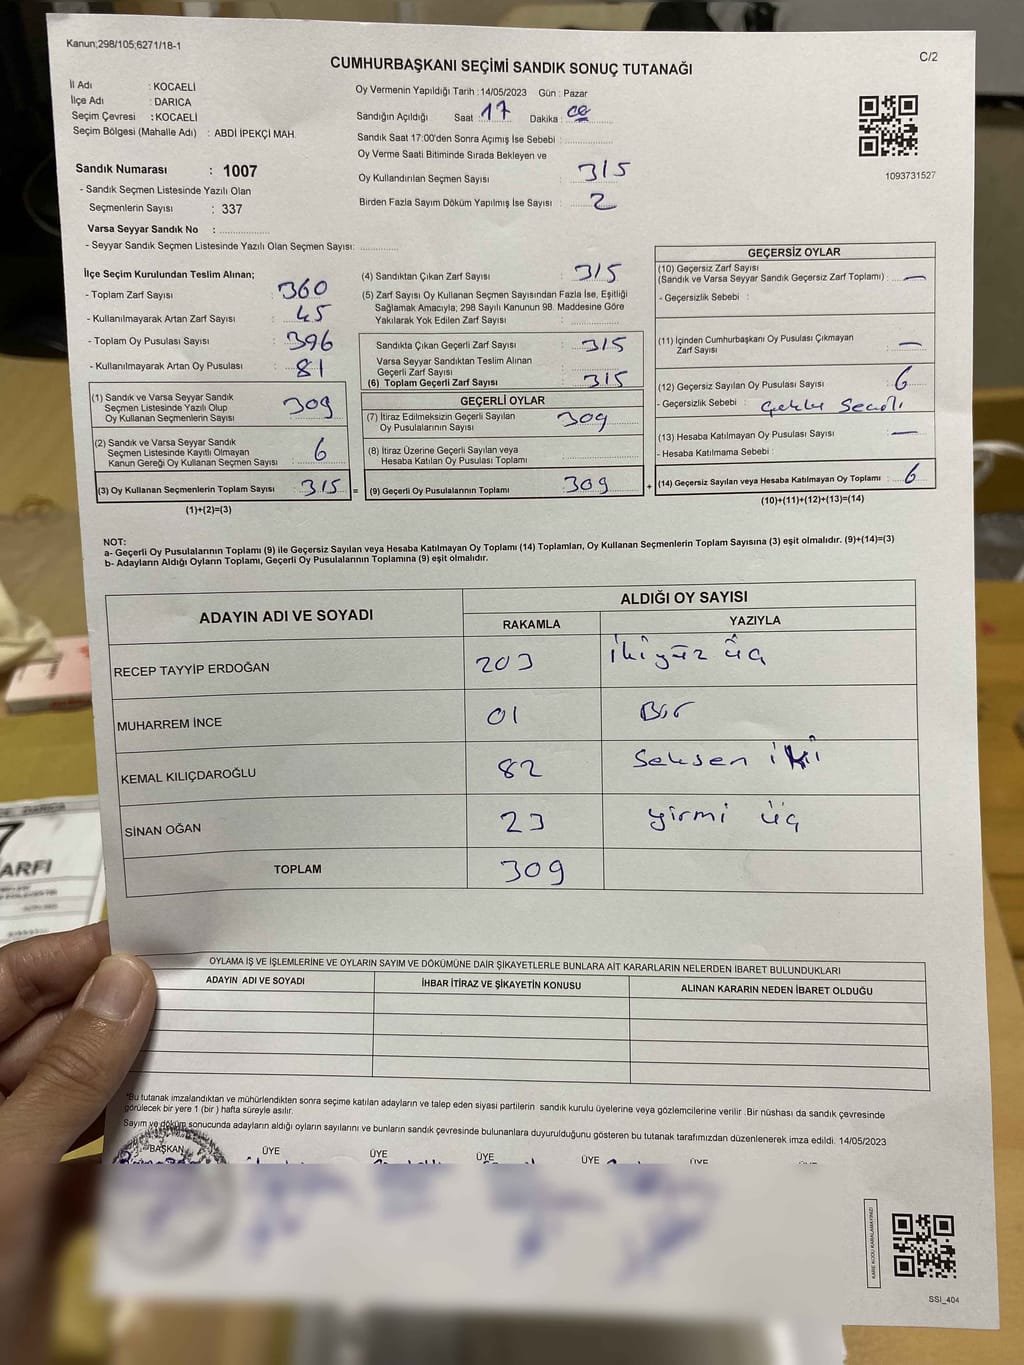 Kanun;298/105;6271/18-1
C/2
CUMHURBAŞKANI SEÇİMİ SANDIK SONUÇ TUTANAĞI
İl Adı : KOCAELİ
İlçe Adı : DARICA
Seçim Çevresi : KOCAELİ
Seçim Bölgesi (Mahalle Adı) : ABDİ İPEKÇİ MAH.
Sandık Numarası : 1007
- Sandık Seçmen Listesinde Yazılı Olan
Seçmenlerin Sayısı : 337
Varsa Seyyar Sandık No :
- Seyyar Sandık Seçmen Listesinde Yazılı Olan Seçmen Sayısı:
Oy Vermenin Yapıldığı Tarih : 14/05/2023 Gün : Pazar
Sandığın Açıldığı Saat : 17 Dakika :
Sandık Saat 17:00'den Sonra Açımış İse Sebebi :
Oy Verme Saati Bitiminde Sırada Bekleyen ve
Oy Kullandırılan Seçmen Sayısı : 315
Birden Fazla Sayım Döküm Yapılmış İse Sayısı : 2
1093731527
İlçe Seçim Kurulundan Teslim Alınan;
- Toplam Zarf Sayısı : 360
- Kullanılmayarak Artan Zarf Sayısı : 45
- Toplam Oy Pusulası Sayısı : 396
- Kullanılmayarak Artan Oy Pusulası : 81
(1) Sandık ve Varsa Seyyar Sandık
Seçmen Listesinde Yazılı Olup
Oy Kullanan Seçmenlerin Sayısı : 309
(2) Sandık ve Varsa Seyyar Sandık
Seçmen Listesinde Kayıtlı Olmayan
Kanun Gereği Oy Kullanan Seçmen Sayısı : 6
(3) Oy Kullanan Seçmenlerin Toplam Sayısı : 315
(1)+(2)=(3)
=
(4) Sandıktan Çıkan Zarf Sayısı : 315
(5) Zarf Sayısı Oy Kullanan Seçmen Sayısından Fazla İse, Eşitliği
Sağlamak Amacıyla; 298 Sayılı Kanunun 98. Maddesine Göre
Yakılarak Yok Edilen Zarf Sayısı :
Sandıkta Çıkan Geçerli Zarf Sayısı : 315
Varsa Seyyar Sandıktan Teslim Alınan
Geçerli Zarf Sayısı :
(6) Toplam Geçerli Zarf Sayısı : 315
GEÇERLİ OYLAR
(7) İtiraz Edilmeksizin Geçerli Sayılan
Oy Pusulalarının Sayısı : 309
(8) İtiraz Üzerine Geçerli Sayılan veya
Hesaba Katılan Oy Pusulası Toplamı :
(9) Geçerli Oy Pusulalarının Toplamı : 309
+
GEÇERSİZ OYLAR
(10) Geçersiz Zarf Sayısı
(Sandık ve Varsa Seyyar Sandık Geçersiz Zarf Toplamı) : —
- Geçersizlik Sebebi :
(11) İçinden Cumhurbaşkanı Oy Pusulası Çıkmayan
Zarf Sayısı : —
(12) Geçersiz Sayılan Oy Pusulası Sayısı : 6
- Geçersizlik Sebebi :
(13) Hesaba Katılmayan Oy Pusulası Sayısı : —
- Hesaba Katılmama Sebebi :
(14) Geçersiz Sayılan veya Hesaba Katılmayan Oy Toplamı : 6
(10)+(11)+(12)+(13)=(14)
NOT:
a- Geçerli Oy Pusulalarının Toplamı (9) ile Geçersiz Sayılan veya Hesaba Katılmayan Oy Toplamı (14) Toplamları, Oy Kullanan Seçmenlerin Toplam Sayısına (3) eşit olmalıdır. (9)+(14)=(3)
b- Adayların Aldığı Oyların Toplamı, Geçerli Oy Pusulalarının Toplamına (9) eşit olmalıdır.
ADAYIN ADI VE SOYADI
ALDIĞI OY SAYISI
RAKAMLA YAZIYLA
RECEP TAYYİP ERDOĞAN 203 ikiyüz üç
MUHARREM İNCE 01 Bir
KEMAL KILIÇDAROĞLU 82 Seksen iki
SİNAN OĞAN 23 yirmi üç
TOPLAM 309
OYLAMA İŞ VE İŞLEMLERİNE VE OYLARIN SAYIM VE DÖKÜMÜNE DAİR ŞİKAYETLERLE BUNLARA AİT KARARLARIN NELERDEN İBARET BULUNDUKLARI
ADAYIN ADI VE SOYADI İHBAR İTİRAZ VE ŞİKAYETİN KONUSU ALINAN KARARIN NEDEN İBARET OLDUĞU
*Bu tutanak imzalandıktan ve mühürlendikten sonra seçime katılan adayların ve talep eden siyasi partilerin sandık kurulu üyelerine veya gözlemcilerine verilir .Bir nüshası da sandık çevresinde
görülecek bir yere 1 (bir ) hafta süreyle asılır.
Sayım ve döküm sonucunda adayların aldığı oyların sayılarını ve bunların sandık çevresinde bulunanlara duyurulduğunu gösteren bu tutanak tarafımızdan düzenlenerek imza edildi. 14/05/2023
BAŞKAN ÜYE ÜYE ÜYE ÜYE ÜYE ÜYE
KARE KODU KARALAMAYINIZ!
SSI_404
7
ARFI